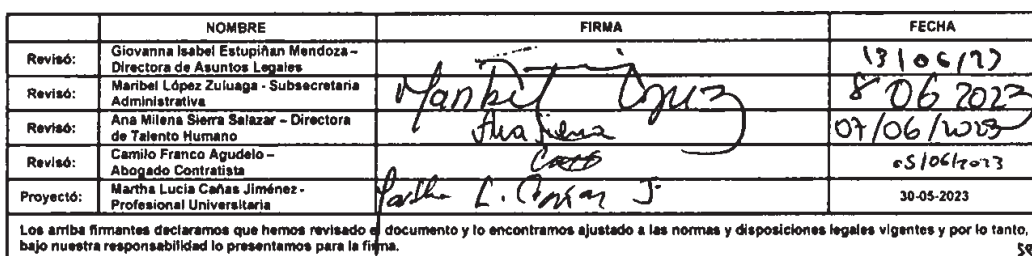 NOMBRE FIRMA FECHA
Revisó: Giovanna Isabel Estupiñan Mendoza –
Directora de Asuntos Legales 13/06/23
Revisó: Maribel López Zuluaga - Subsecretaria
Administrativa 8 06 2023
Revisó: Ana Milena Sierra Salazar – Directora
de Talento Humano Ana Sierra 07/06/2023
Revisó: Camilo Franco Agudelo –
Abogado Contratista 05/06/2023
Proyectó: Martha Lucia Cañas Jiménez -
Profesional Universitaria Martha L. Cañas J 30-05-2023
Los arriba firmantes declaramos que hemos revisado el documento y lo encontramos ajustado a las normas y disposiciones legales vigentes y por lo tanto,
bajo nuestra responsabilidad lo presentamos para la firma.